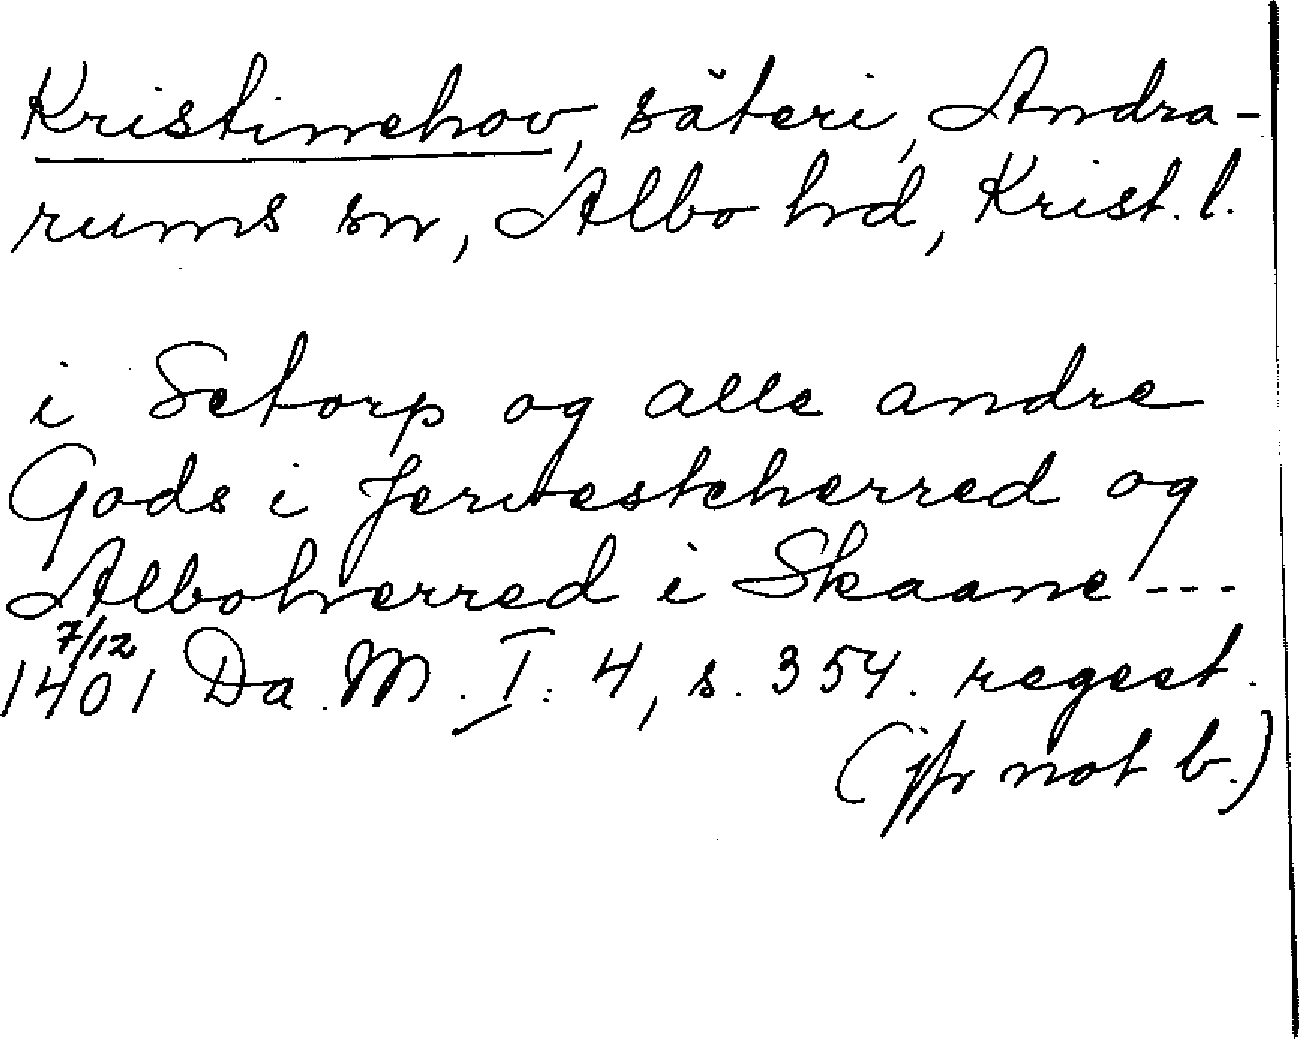 Kristinehov, säteri, Andra-
rums sn, Albo hd, Krist. l.
i Setorp og alle andre
Gods i Jerwestcherred og
Alboherred i Skaane ---
7/12
1401 Da. M. I: 4, s. 354. regest.
(jfr not b.)